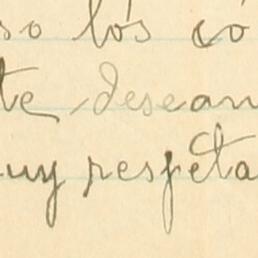 so los co
te desean
uy respeta